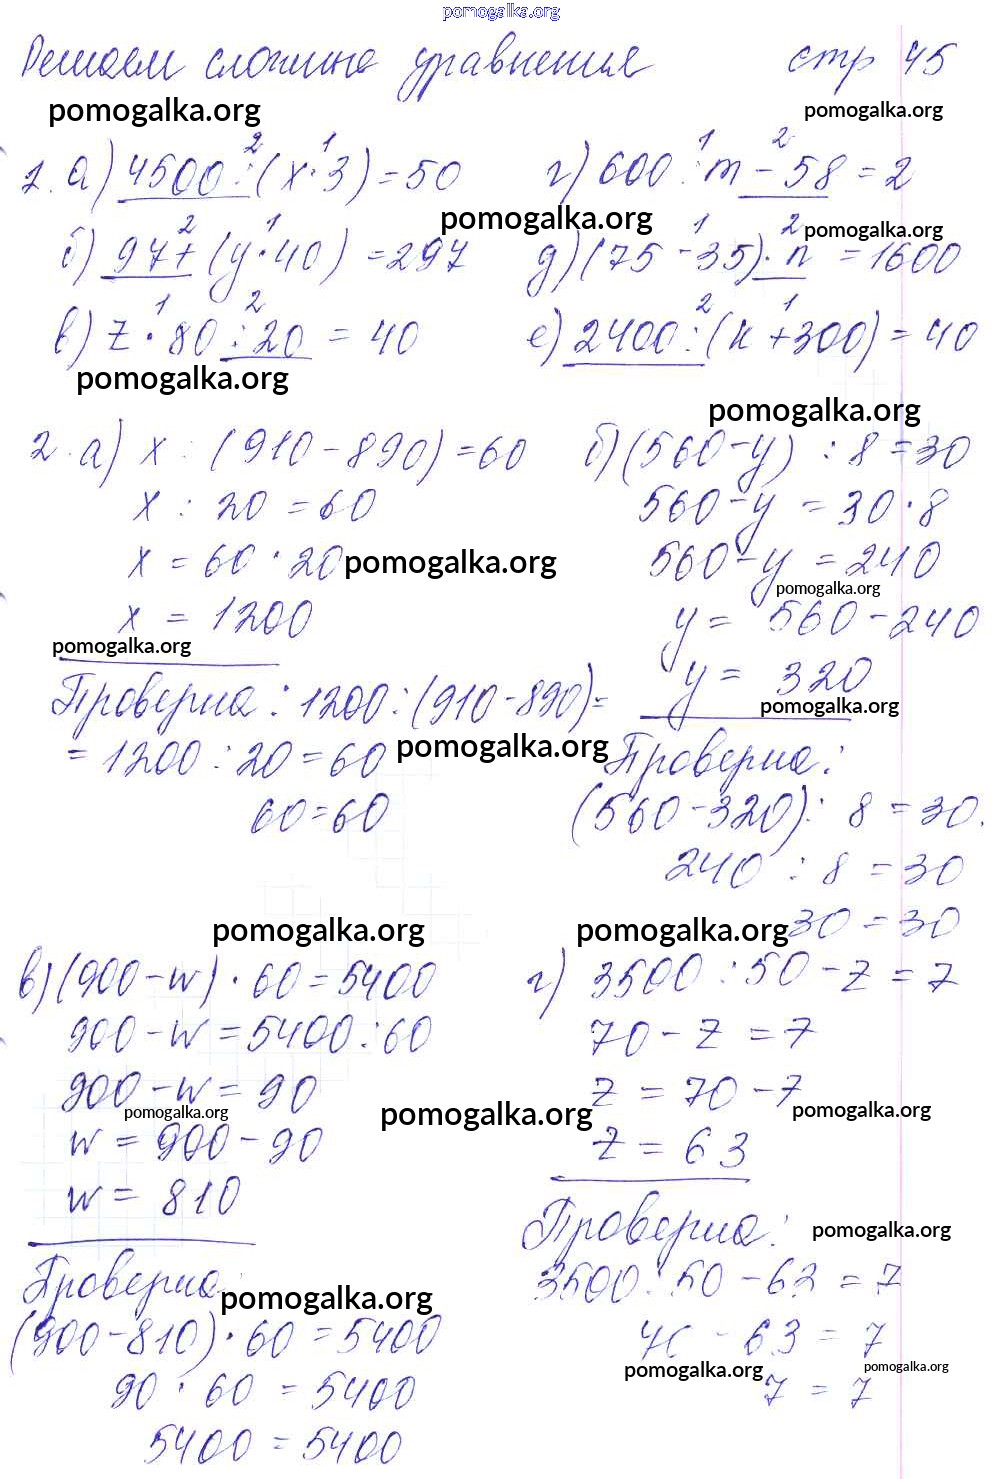 pomogalka.org
Решаем сложные уравнения стр 45
pomogalka.org pomogalka.org
1. а) 4500 : (x · 3) = 50
2 1
г) 600 : m - 58 = 2
1 2
pomogalka.org pomogalka.org
б) 97 + (y · 40) = 297
2 1
д) (75 - 35) · n = 1600
1 2
в) z · 80 : 20 = 40
1 2
е) 2400 : (k + 300) = 40
2 1
pomogalka.org
pomogalka.org
2. а) x : (910 - 890) = 60
x : 20 = 60
x = 60 · 20
pomogalka.org
x = 1200
pomogalka.org
Проверка: 1200 : (910 - 890) =
= 1200 : 20 = 60
pomogalka.org
60 = 60
б) (560 - y) : 8 = 30
560 - y = 30 · 8
560 - y = 240
pomogalka.org
y = 560 - 240
y = 320
pomogalka.org
Проверка:
(560 - 320) : 8 = 30.
240 : 8 = 30
30 = 30
pomogalka.org pomogalka.org
в) (900 - w) · 60 = 5400
900 - w = 5400 : 60
900 - w = 90
pomogalka.org
w = 900 - 90
w = 810
Проверка:
pomogalka.org
(900 - 810) · 60 = 5400
90 · 60 = 5400
5400 = 5400
г) 3500 : 50 - z = 7
70 - z = 7
z = 70 - 7
pomogalka.org pomogalka.org
z = 63
Проверка:
pomogalka.org
3500 : 50 - 63 = 7
70 - 63 = 7
pomogalka.org pomogalka.org
7 = 7